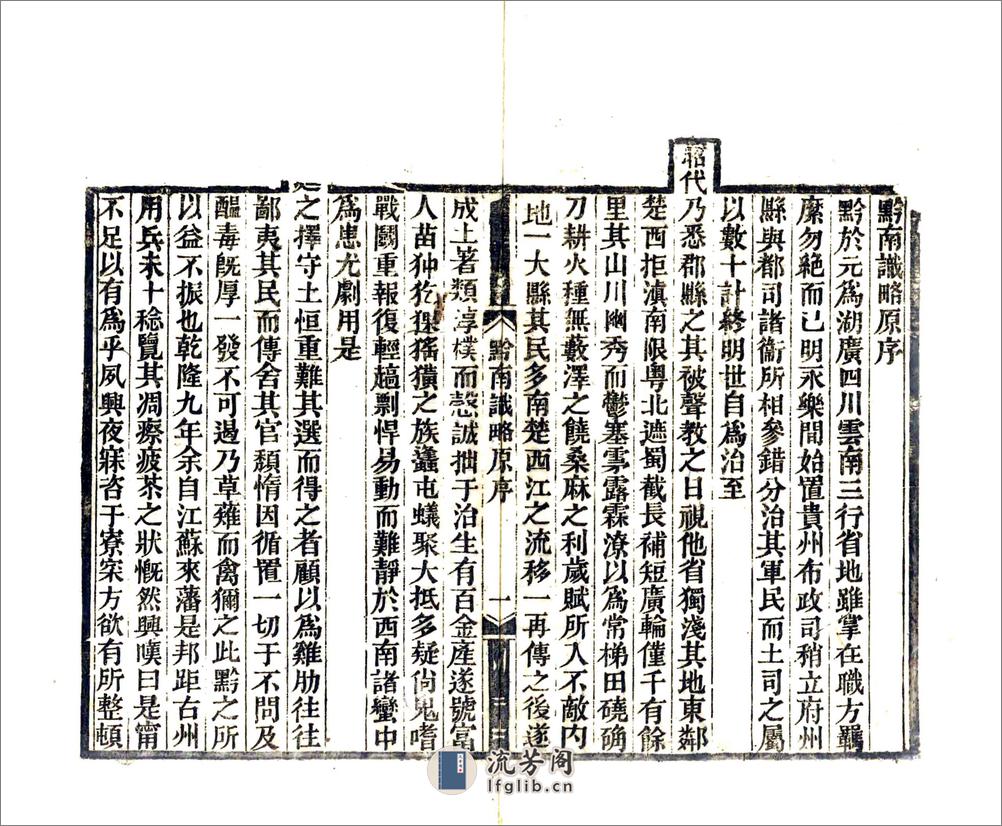 黔南識略原序
黔於元爲湖廣四川雲南三行省地雖掌在職方羈
縻勿絕而已明永樂間始置貴州布政司稍立府州
縣與都司諸衞所相參錯分治其軍民而土司之屬
以數十計終明世自爲治至
昭代乃悉郡縣之其被聲教之日視他省獨淺其地東鄰
楚西拒滇南限粵北遮蜀截長補短廣輪僅千有餘
里其山川幽秀而鬱塞雺露霖潦以爲常梯田磽确
刀耕火種無藪澤之饒桑麻之利歲賦所入不敵內
地一大縣其民多南楚西江之流移一再傳之後遂
黔南識略原序
一
成土著類淳樸而愨誠拙于治生有百金産遂號富
人苗狆犵猓猺獚之族蠭屯蟻聚大抵多疑尙鬼嗜
戰鬭重報復輕趫剽悍易動而難靜於西南諸蠻中
爲患尤劇用是
之擇守土恒重難其選而得之者顧以爲雞肋往往
鄙夷其民而傳舍其官頹惰因循置一切于不問及
醞毒旣厚一發不可遏乃草薙而禽獮之此黔之所
以益不振也乾隆九年余自江蘇來藩是邦距古州
用兵未十稔覽其凋瘵疲苶之狀慨然興嘆曰是甯
不足以有爲乎夙興夜寐咨于寮寀方欲有所整頓
流芳阁
lfglib.cn